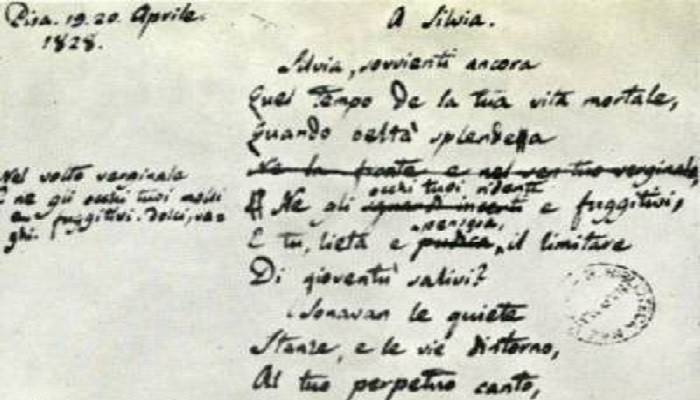 Pisa. 19. 20. Aprile.
1828.
A Silvia.
Silvia, sovvienti ancora
Quel tempo de la tua vita mortale,
Quando beltà splendea
Ne la fronte e nel sen tuo verginale,
occhi tuoi ridenti
Ne gli sguardi incerti e fuggitivi,
pensosa,
E tu, lieta e pudica, il limitare
Di gioventù salivi?
Sonavan le quiete
Stanze, e le vie dintorno,
Al tuo perpetuo canto,
Nel volto verginale
E ne gli occhi tuoi molli
e fuggitivi. dolci, va-
ghi.